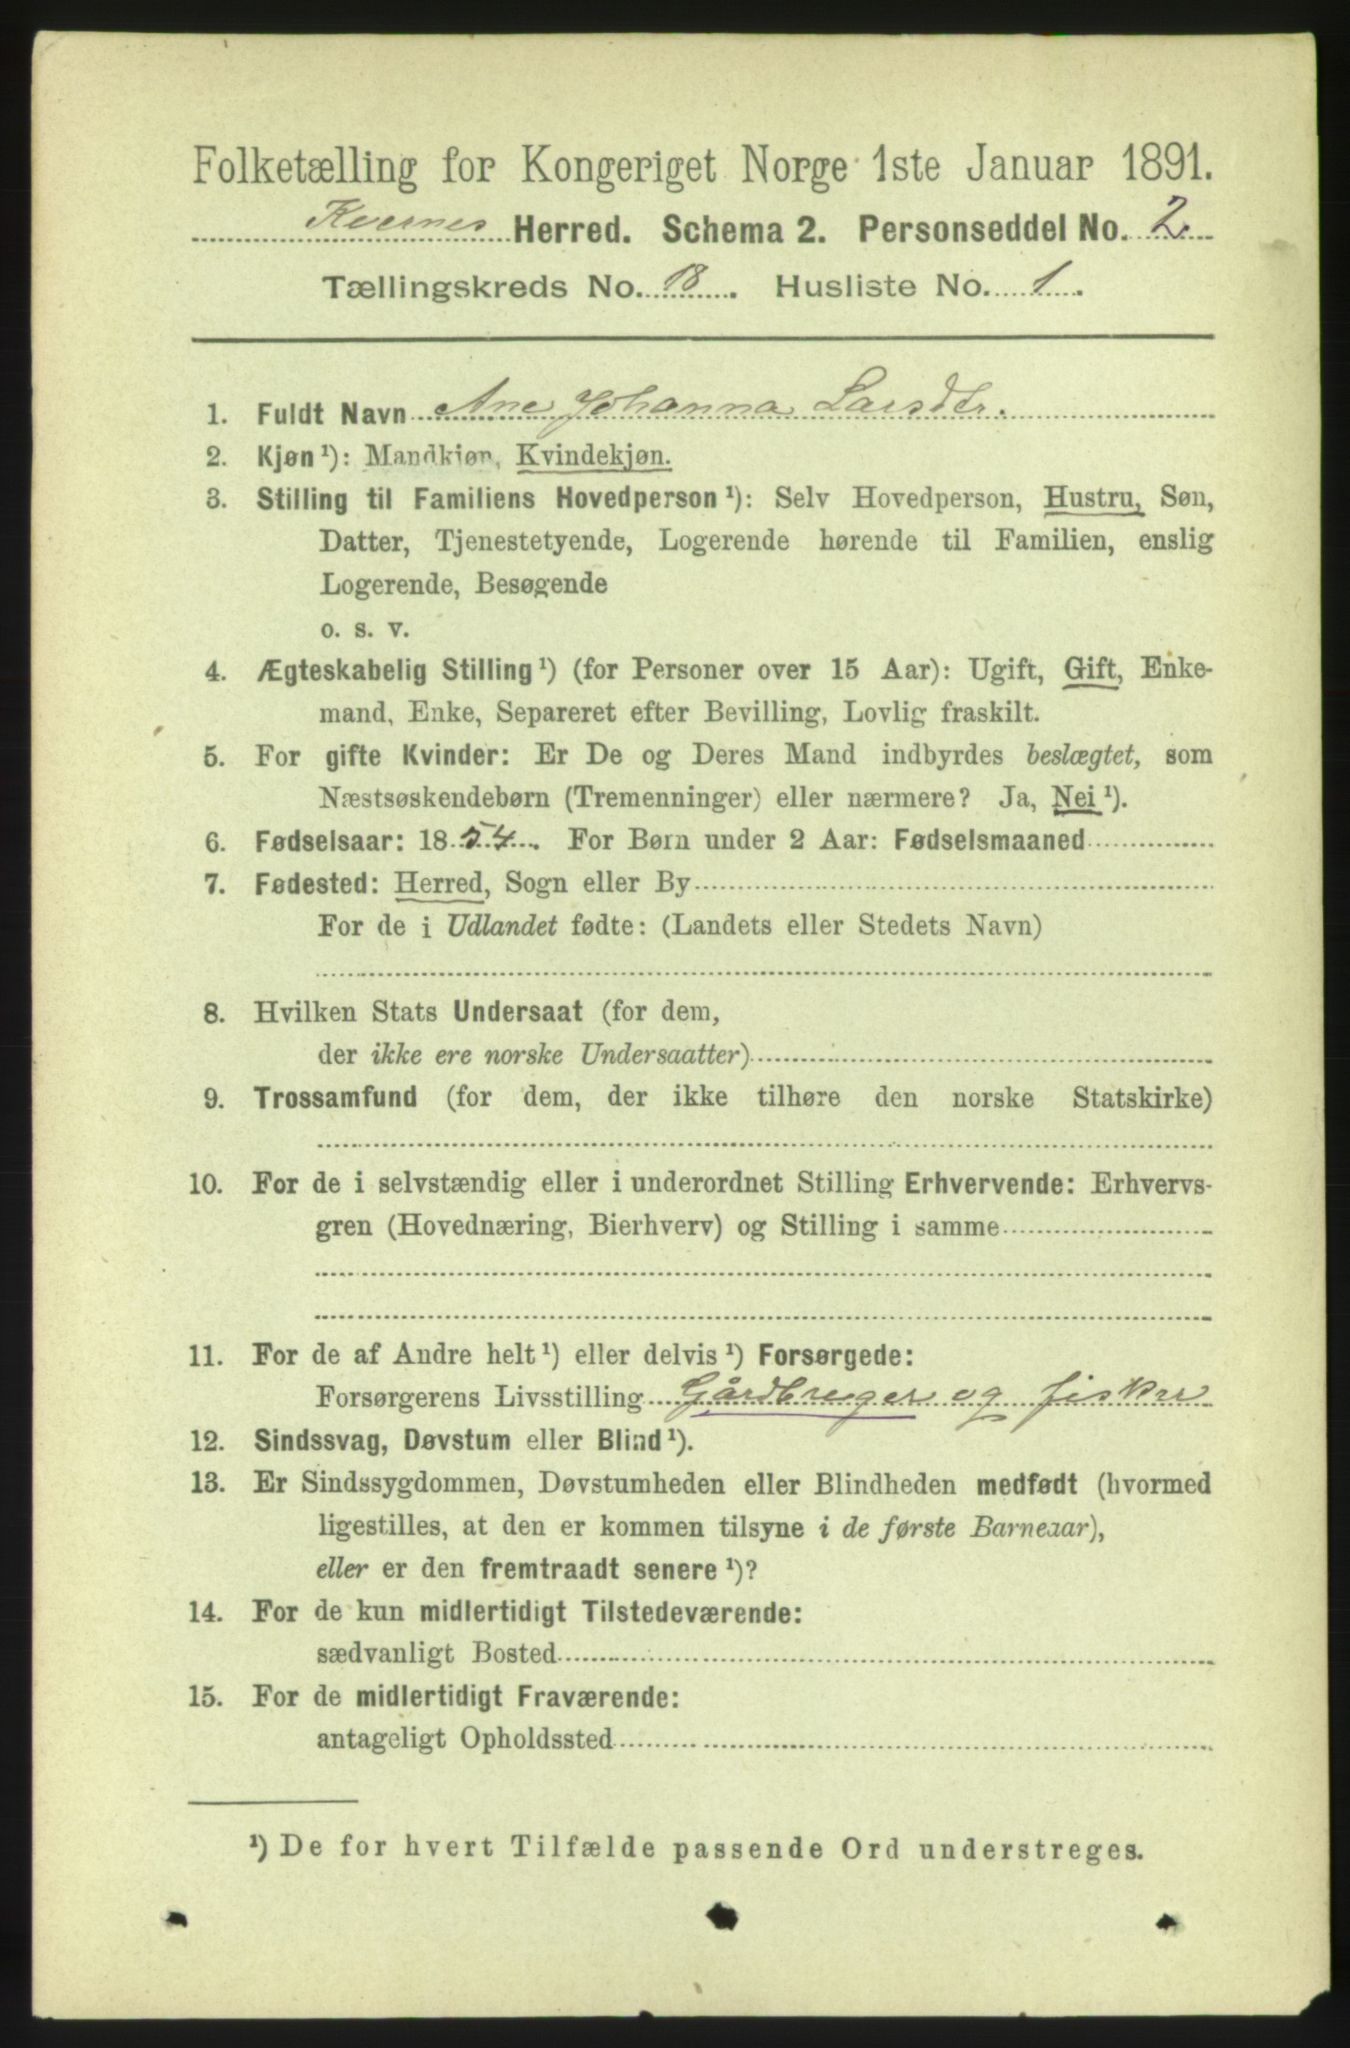 Folketælling for Kongeriget Norge 1ste Januar 1891.
Kvernes Herred. Schema 2. Personseddel No. 2.
Tællingskreds No. 13. Husliste No. 1.
1. Fuldt Navn Ane Johanna Larsdtr.
2. Kjøn¹): Mandkjøn, Kvindekjøn.
3. Stilling til Familiens Hovedperson¹): Selv Hovedperson, Hustru, Søn,
Datter, Tjenestetyende, Logerende hørende til Familien, enslig
Logerende, Besøgende
o. s. v.
4. Ægteskabelig Stilling¹) (for Personer over 15 Aar): Ugift, Gift, Enke-
mand, Enke, Separeret efter Bevilling, Lovlig fraskilt.
5. For gifte Kvinder: Er De og Deres Mand indbyrdes beslægtet, som
Næstsøskendebørn (Tremenninger) eller nærmere? Ja, Nei¹).
6. Fødselsaar: 1854. For Børn under 2 Aar: Fødselsmaaned
7. Fødested: Herred, Sogn eller By
For de i Udlandet fødte: (Landets eller Stedets Navn)
8. Hvilken Stats Undersaat (for dem,
der ikke ere norske Undersaatter)
9. Trossamfund (for dem, der ikke tilhøre den norske Statskirke)
10. For de i selvstændig eller i underordnet Stilling Erhvervende: Erhvervs-
gren (Hovednæring, Bierhverv) og Stilling i samme
11. For de af Andre helt¹) eller delvis¹) Forsørgede:
Forsørgerens Livsstilling Gårdbruger og fisker
12. Sindssvag, Døvstum eller Blind¹).
13. Er Sindssygdommen, Døvstumheden eller Blindheden medfødt (hvormed
ligestilles, at den er kommen tilsyne i de første Barneaar),
eller er den fremtraadt senere¹)?
14. For de kun midlertidigt Tilstedeværende:
sædvanligt Bosted
15. For de midlertidigt Fraværende:
antageligt Opholdssted
¹) De for hvert Tilfælde passende Ord understreges.